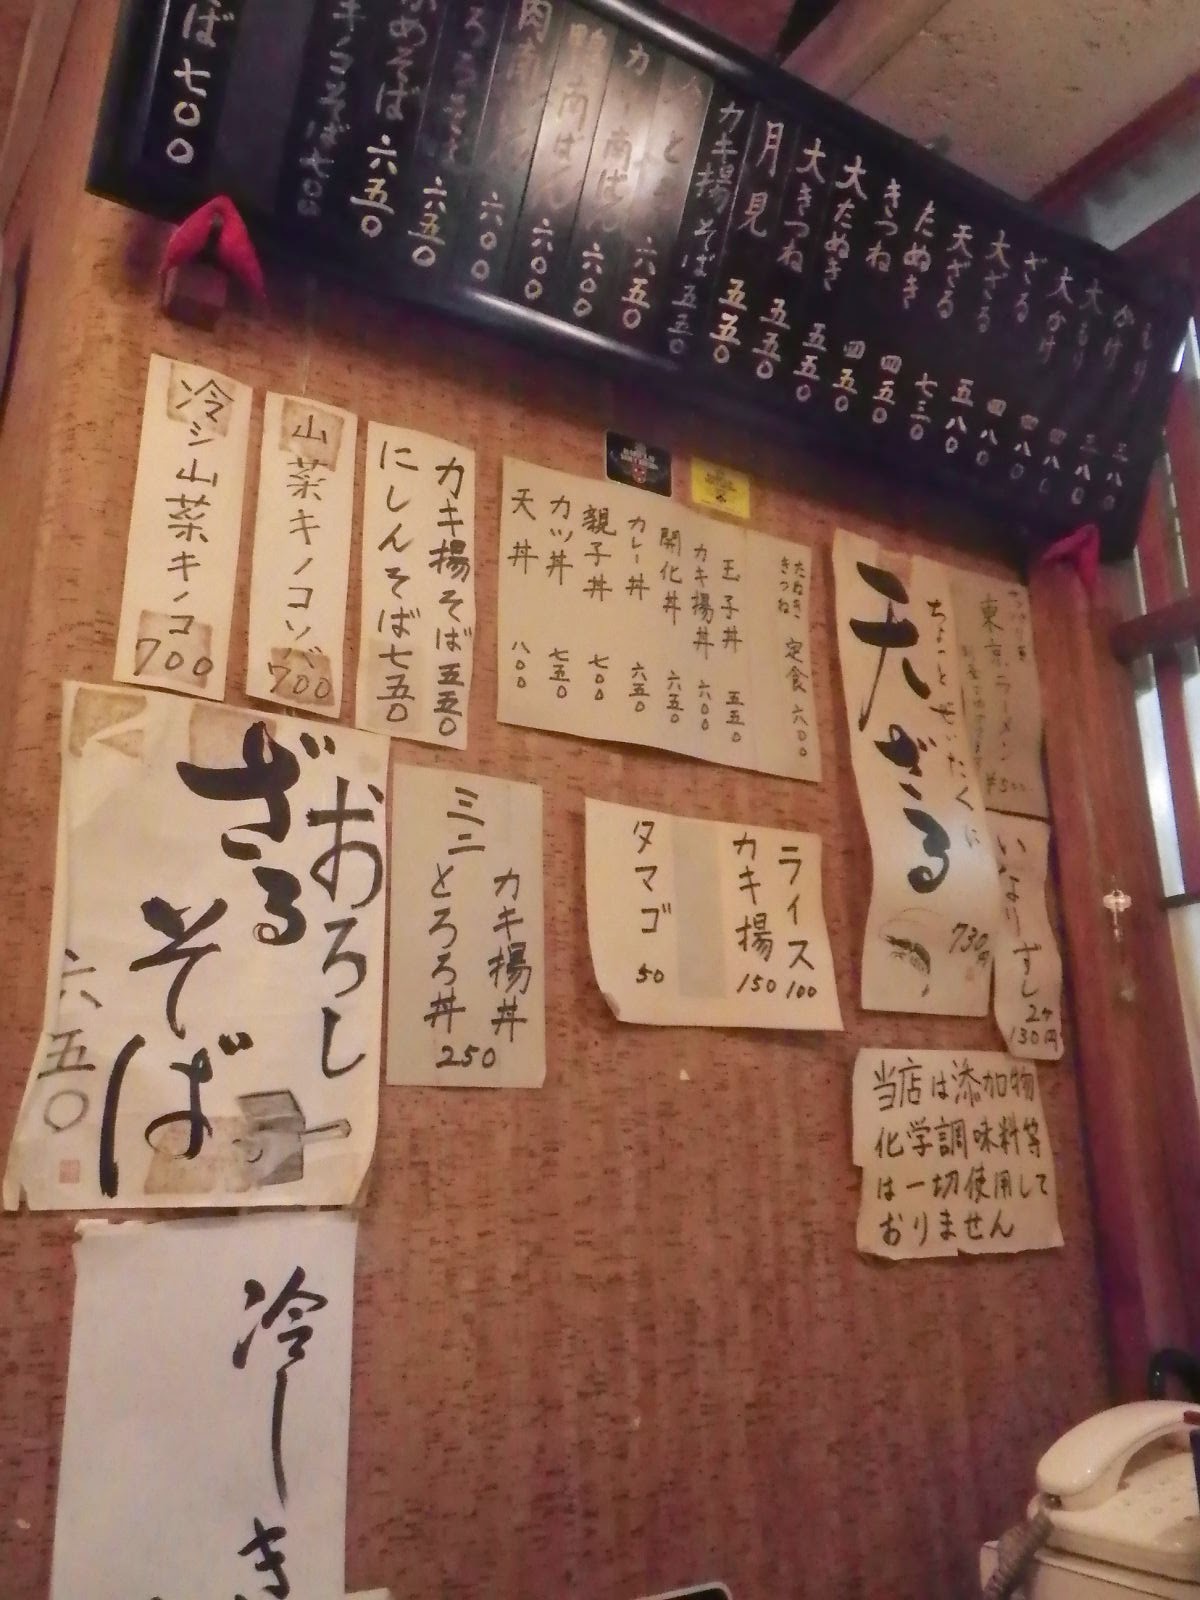 もり 三八〇
かけ 三八〇
大もり
大かけ
ざる 四八〇
大ざる 四八〇
天ざる
たぬき
きつね 四五〇
大たぬき 四五〇
大きつね 五五〇
月見 五五〇
カキ揚そば 五五〇
カレー南ばん 六五〇
鴨南ばん 六〇〇
肉南ばん 六〇〇
六〇〇
六五〇
めそば 六五〇
キノコそば 七〇〇
ば 七〇〇
冷シ山菜キノコ
700
山菜キノコソバ
700
カキ揚そば 五五〇
にしんそば 七五〇
たぬき
きつね
定食 六〇〇
玉子丼 五五〇
カキ揚丼 六〇〇
開化丼 六五〇
カレー丼 六五〇
親子丼 七〇〇
カツ丼 七五〇
天丼 八〇〇
東京ラーメン
¥500
ちょっとぜいたくに
天ざる
730円
いなりすし
2ケ
130円
おろし
ざる
そば
六五〇
カキ揚丼
ミニ
とろろ丼
250
ライス 100
カキ揚 150
タマゴ 50
当店は添加物
化学調味料等
は一切使用して
おりません
冷しき